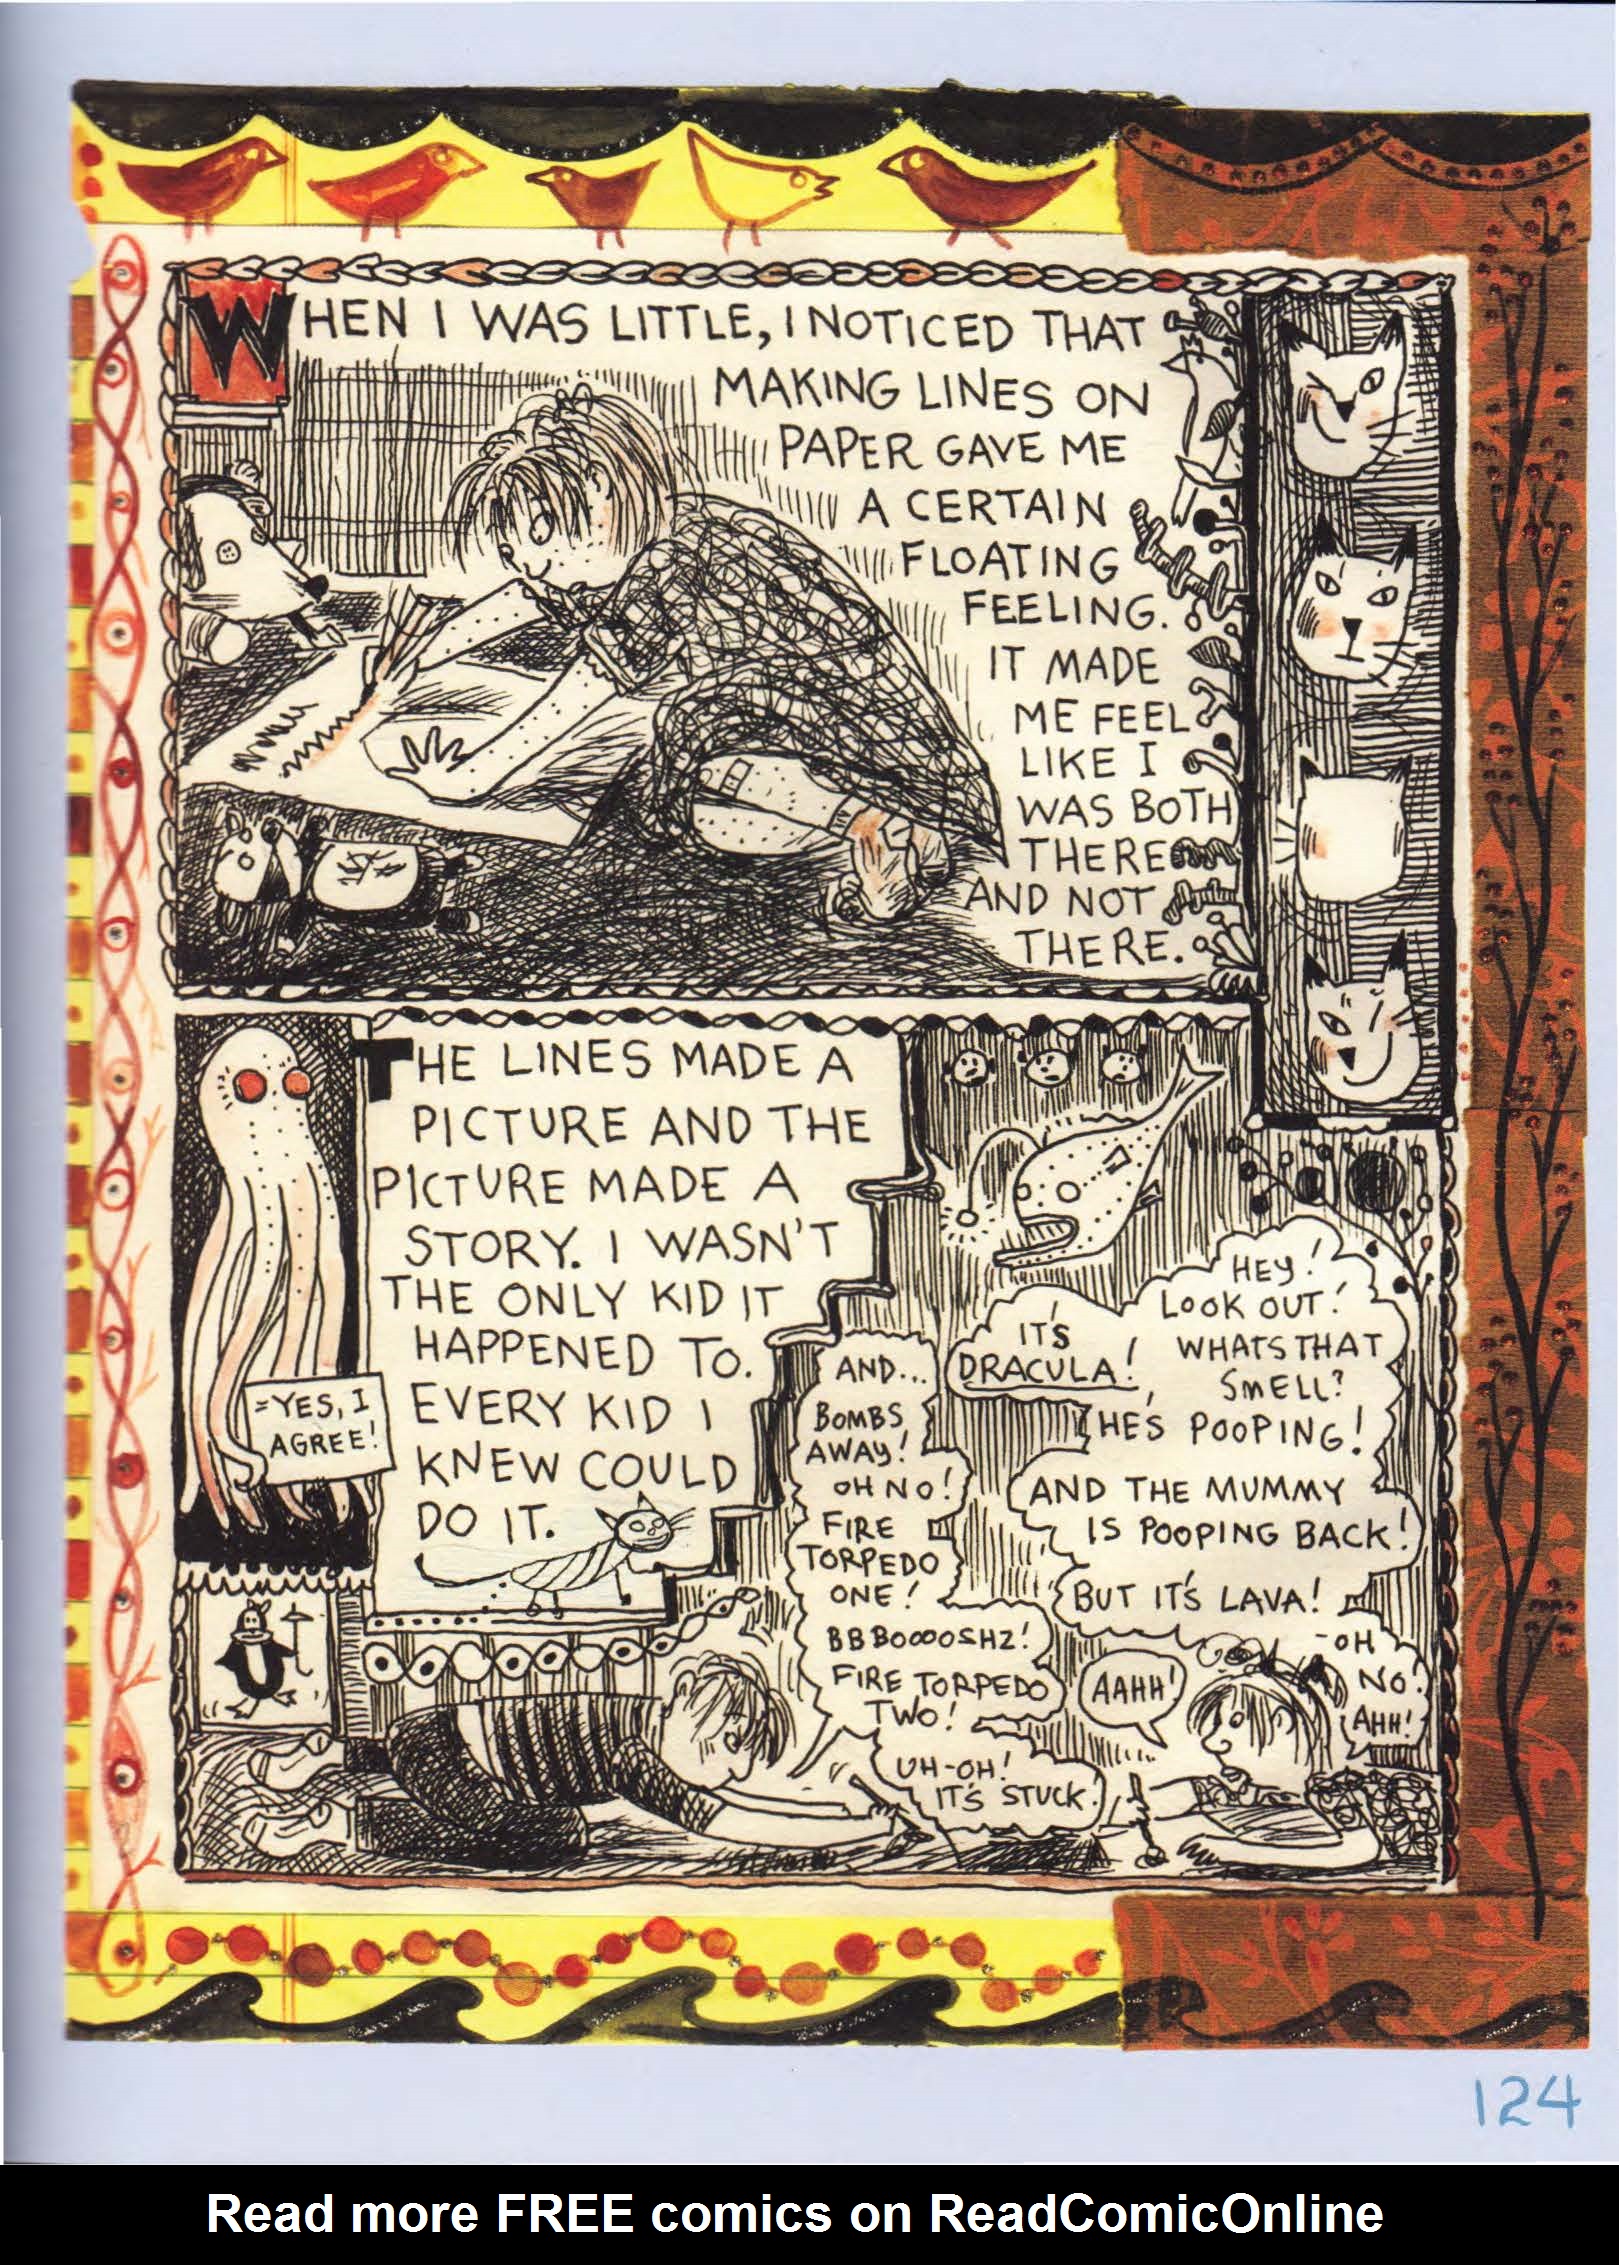 WHEN I WAS LITTLE, I NOTICED THAT
MAKING LINES ON
PAPER GAVE ME
A CERTAIN
FLOATING
FEELING.
IT MADE
ME FEEL
LIKE I
WAS BOTH
THERE
AND NOT
THERE.
THE LINES MADE A
PICTURE AND THE
PICTURE MADE A
STORY. I WASN'T
THE ONLY KID IT
HAPPENED TO.
EVERY KID I
KNEW COULD
DO IT.
=YES, I
AGREE!
AND...
BOMBS
AWAY!
OH NO!
FIRE
TORPEDO
ONE!
BBBOOOOSHZ!
FIRE TORPEDO
TWO!
UH-OH!
IT'S STUCK!
IT'S
DRACULA!
HEY!
LOOK OUT!
WHATS THAT
SMELL?
HE'S POOPING!
AND THE MUMMY
IS POOPING BACK!
BUT IT'S LAVA!
AAHH!
-OH
NO!
AHH!
124
Read more FREE comics on ReadComicOnline